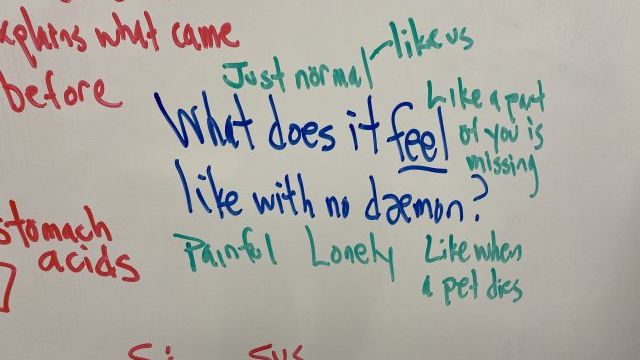 explains what came
before
Just normal like us
What does it feel
like with no daemon?
Like a part
of you is
missing
Painful Lonely
Like when
a pet dies
stomach
acids